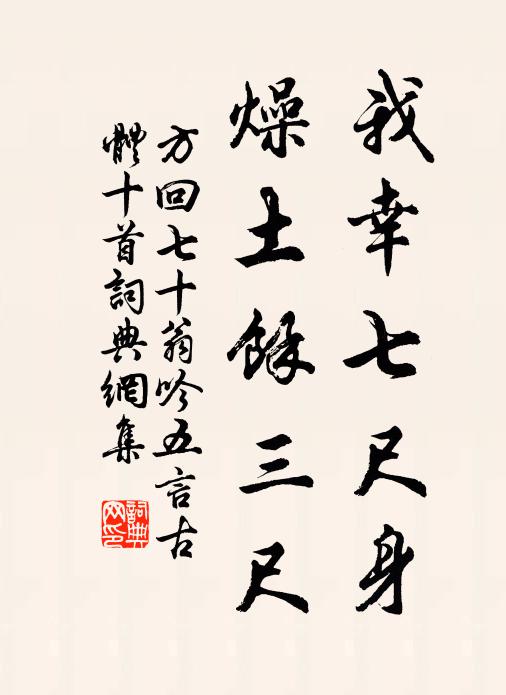 我幸七尺身
燥土餘三尺
方回七十翁吟五言古
體十首詞典網集
詞典网印